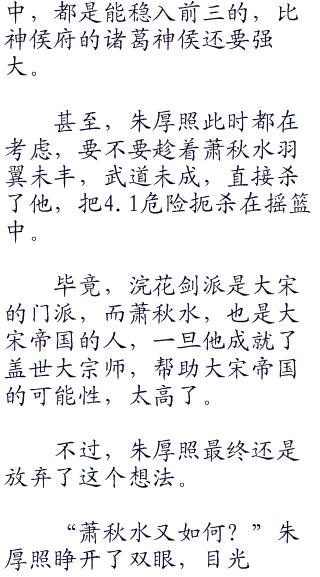 中，都是能稳入前三的，比
神侯府的诸葛神侯还要强
大。
甚至，朱厚照此时都在
考虑，要不要趁着萧秋水羽
翼未丰，武道未成，直接杀
了他，把4.1危险扼杀在摇篮
中。
毕竟，浣花剑派是大宋
的门派，而萧秋水，也是大
宋帝国的人，一旦他成就了
盖世大宗师，帮助大宋帝国
的可能性，太高了。
不过，朱厚照最终还是
放弃了这个想法。
“萧秋水又如何？”朱
厚照睁开了双眼，目光